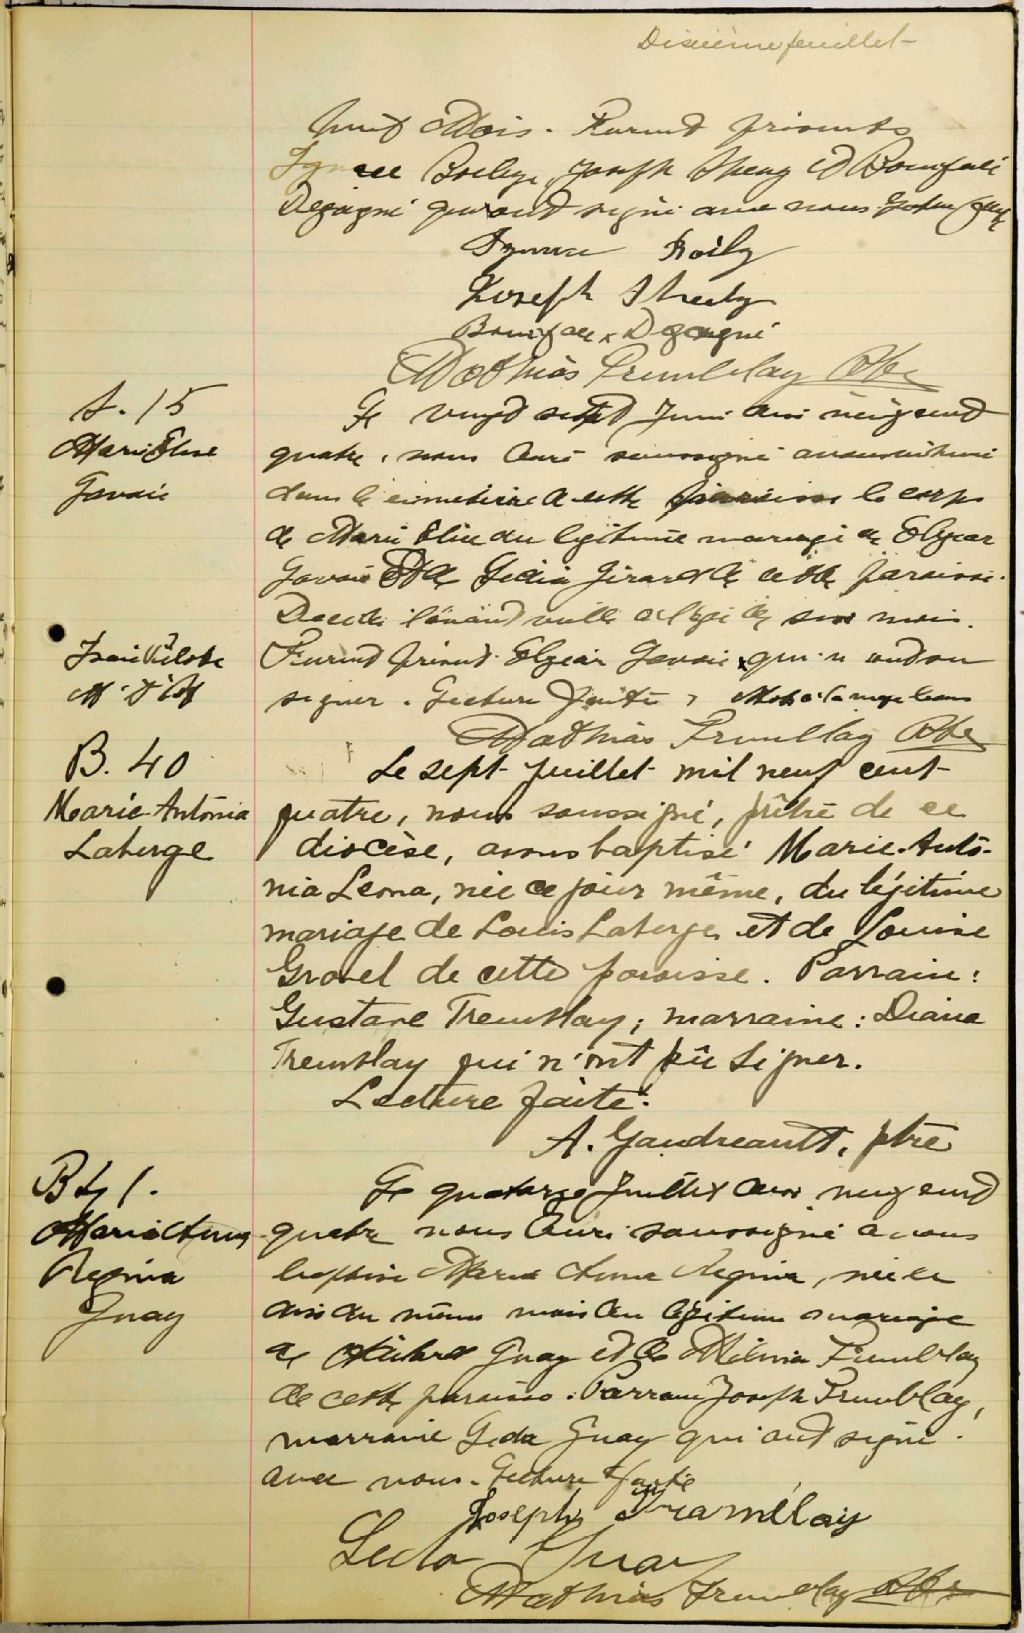 Dixième feuillet
huit Mois. Furent présents
Ignace Boily, Joseph Sheny et Boniface
Degagné qui ont signé avec nous. Lecture faite
Ignace Boily
Joseph
Boniface x Dégagné
Mathias Tremblay Ptre
S. 15
Marie Elise
Gavais
Le vingt sept Juin mil neuf cent
quatre, nous Curé soussigné avons inhumé
dans le cimetière de cette paroisse le corps
de Marie Elise du légitime mariage de Elzéar
Gavais et de Girard de cette paroisse.
Décédé l'avant veille à l'âge de six mois.
Furent présent Elzéar Gavais qui n'ont su
signer. Lecture faite,
Mathias Tremblay Ptre
B. 40
Marie-Antonia
Laberge
Le sept juillet mil neuf cent
quatre, nous soussigné, prêtre de ce
diocèse, avons baptisé Marie-Anto-
nia Leona, née ce jour même, du légitime
mariage de Louis Laberge et de Louise
Gravel de cette paroisse. Parrain:
Gustave Tremblay; marraine: Diana
Tremblay qui n'ont pû signer.
Lecture faite.
A. Gaudreault, ptre
B 41.
Marie Anna
Regina
Guay
Le quatorze Juillet mil neuf cent
quatre nous Curé soussigné avons
baptisé Marie Anna Regina, née le
dix du même mois du légitime mariage
de Guay et de Tremblay
de cette paroisse. Parrain Joseph Tremblay,
marraine Leda Guay qui ont signé
avec nous. Lecture faite
Joseph Tramélay
Leda Guay
Mathias Tremblay Ptre